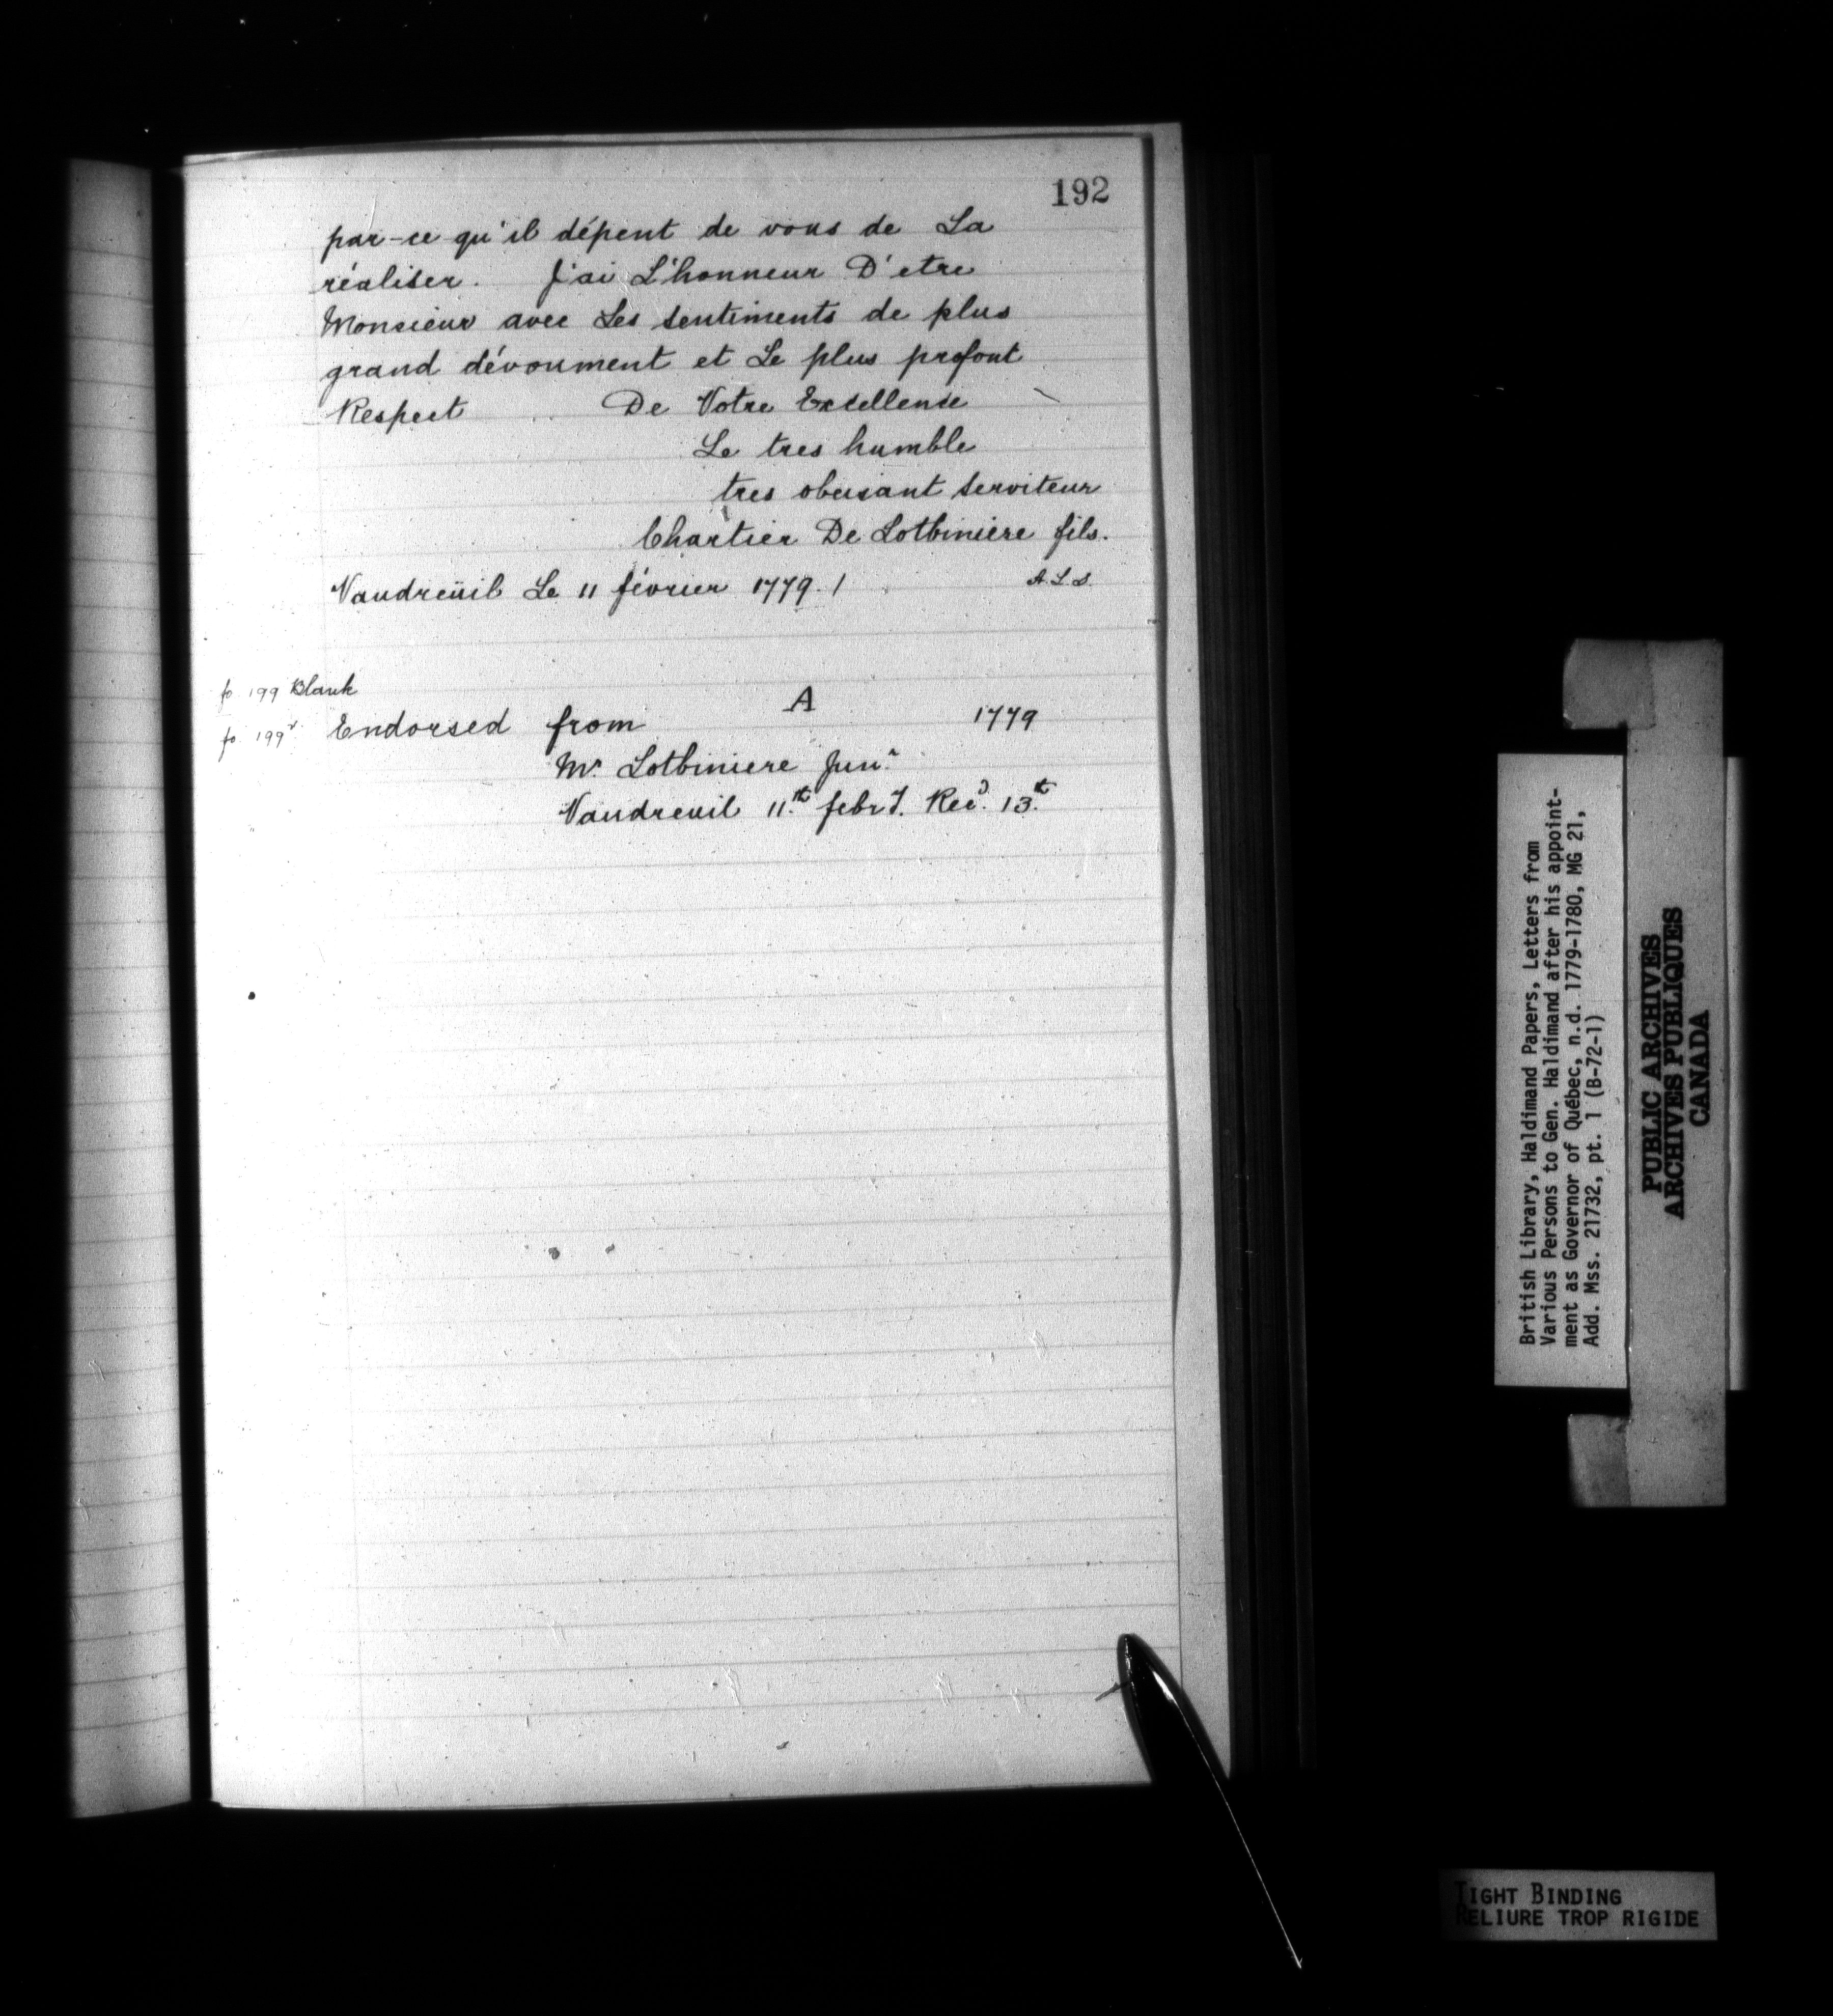 192
par-ce qu'il dépent de vous de La
réaliser. J'ai L'honneur D'etre
Monsieur avec Les sentiments de plus
grand dévoument et Le plus profont
Respect De Votre Excellense
Le tres humble
tres obeisant serviteur
Chartier De Lotbiniere fils.
Vaudreüil Le 11 février 1779. /
A.L.S.
fo. 199 Blank
A
fo. 199v Endorsed from 1779
Mr. Lotbiniere Junr
Vaudreuil 11.th febry. Recd. 13.th
British Library, Haldimand Papers, Letters from
Various Persons to Gen. Haldimand after his appoint-
ment as Governor of Québec, n.d. 1779-1780, MG 21,
Add. Mss. 21732, pt. 1 (B-72-1)
PUBLIC ARCHIVES
ARCHIVES PUBLIQUES
CANADA
TIGHT BINDING
RELIURE TROP RIGIDE